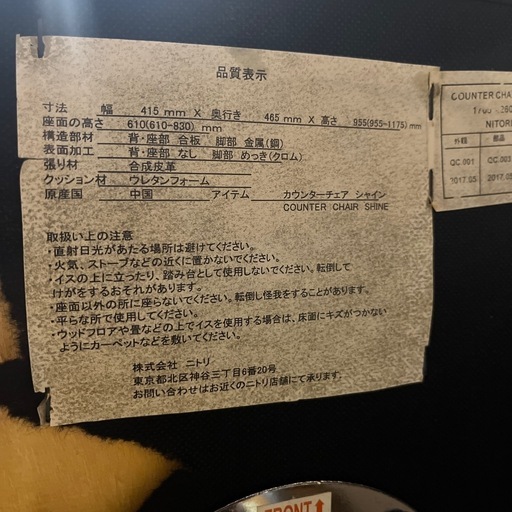 品質表示
寸法 幅 415 mm X 奥行き 465 mm X 高さ 955(955~1175) mm
座面の高さ 610(610~830) mm
構造部材 背・座部 合板 脚部 金属(鋼)
表面加工 背・座部 なし 脚部 めっき(クロム)
張り材 合成皮革
クッション材 ウレタンフォーム
原産国 中国 アイテム カウンターチェア シャイン
COUNTER CHAIR SHINE
取扱い上の注意
・直射日光があたる場所は避けてください。
・火気、ストーブなどの近くに置かないでください。
・イスの上に立ったり、踏み台として使用しないでください。転倒して
けがをするおそれがあります。
・座面以外の所に座らないでください。転倒し怪我をすることがあります。
・平らな所で使用してください。
・ウッドフロアや畳などの上でイスを使用する場合は、床面にキズがつかない
ようにカーペットなどを敷いてください。
株式会社 ニトリ
東京都北区神谷三丁目6番20号
お問い合わせはお近くのニトリ店舗にて承ります。
COUNTER CHA
NITORI
外箱 部品
QC.001 QC.003
2017.05 2017.05
FRONT↑